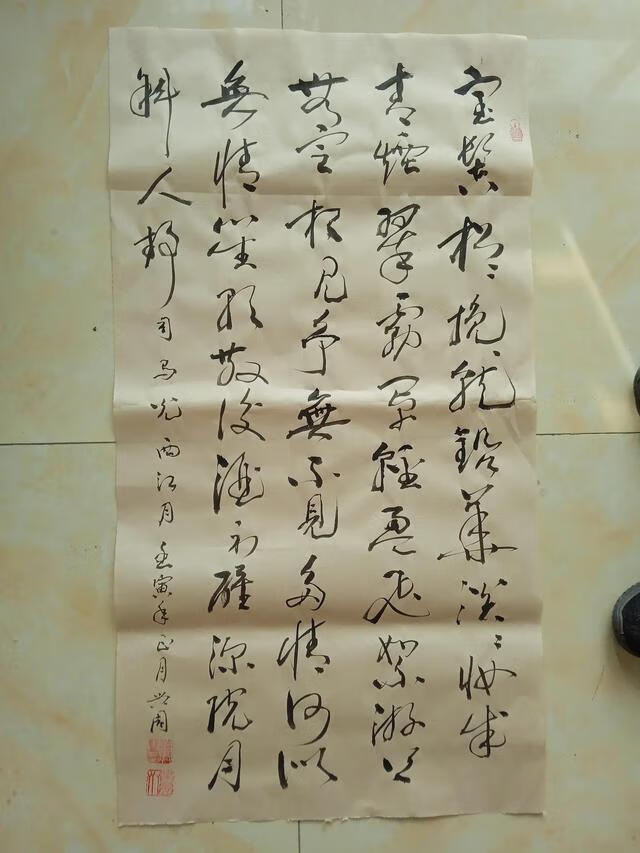 宝髻松松挽就鉛華淡淡妝成
青煙翠霧罩輕盈飛絮游
無定相見爭無不見多情何似
無情笙歌散後酒初醒深院月
斜人靜 司馬光西江月 壬寅年正月